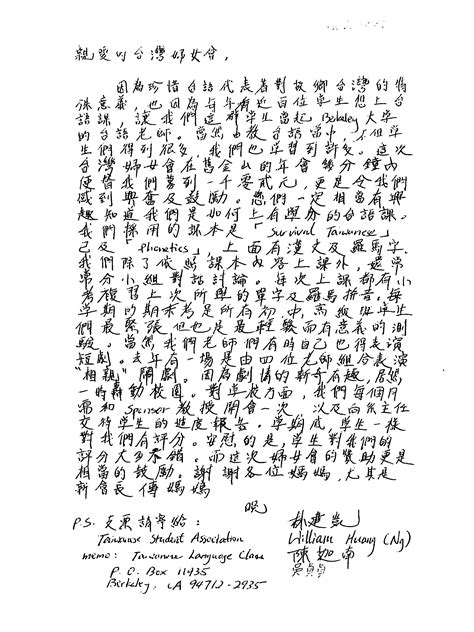 親愛的台灣婦女會,
因為珍惜台語代表著對故鄉台灣的特
殊意義,也因為每年有近百位學生想上台
語課,讓我們這群學生當起 Berkeley 大學
的台語老師。當然由教台語當中,不但學
生們得到很多,我們也學習到許多。這次
台灣婦女會在舊金山的年會幾分鐘內
便替我們募到一千零貳元,更是令我們
感到興奮及鼓勵。您們一定相當有興
趣知道我們是如何上有學分的台語課。
我們採用的課本是「Survival Taiwanese」
己及「phonetics」,上面有漢文及羅馬字.
我們除了依照課本內容上課外,還常
常分小組對話討論。每次上課都有小
考複習上次所學的單字及羅馬拼音.每
學期的期末考是所有初,中,高級班學生
們最緊張但也是最輕鬆而有意義的測
驗。當然我們老師們有時自己也得表演
短劇。去年有一場是由四位老師組合表演
"相親"鬧劇。因為劇情的新奇有趣,居然
一時轟動校園。對學校方面,我們每個月
需和 Sponsor 教授開會一次 以及向系主任
交待學生的進度報告。學期底,學生一樣
對我們有評分。安慰的是,學生對我們的
評分大多不錯。而這次婦女會的贊助更是
相當的鼓勵。謝謝各位媽媽,尤其是
新會長傅媽媽
祝
林建凱
P.S. 支票請寄給:
William Huang (Ng)
Taiwanese Student Association
陳加南
memo: Taiwanese Language Class
吳貞貞
P.O. Box 11435
Berkeley, CA 94712-2935